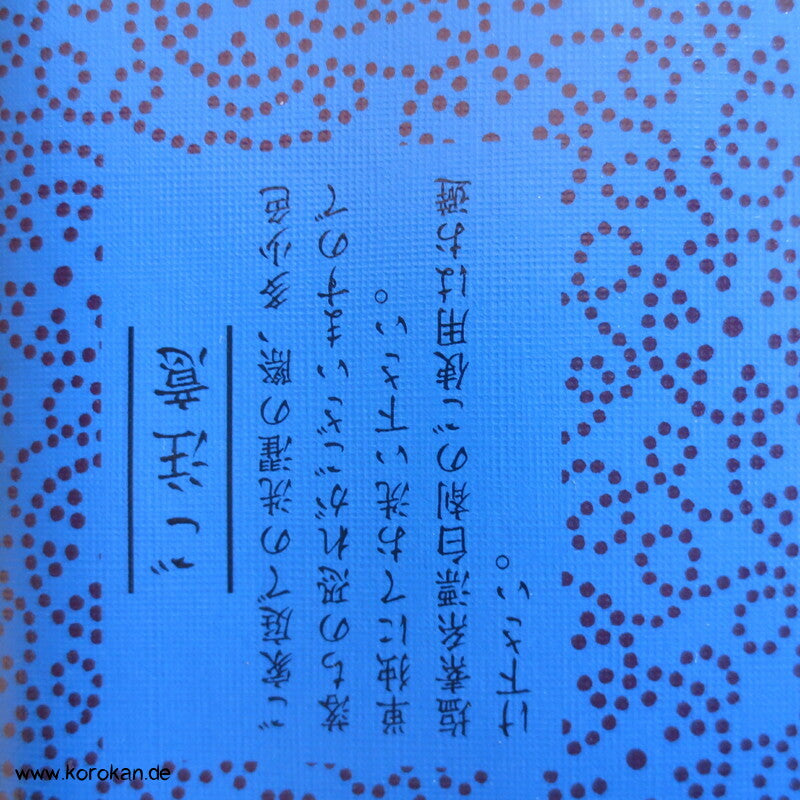 ご注意
ご家庭での洗濯の際、多少色
落ちの恐れがございますので
単独にてお洗い下さい。
塩素系漂白剤のご使用はお避
け下さい。
www.korokan.de